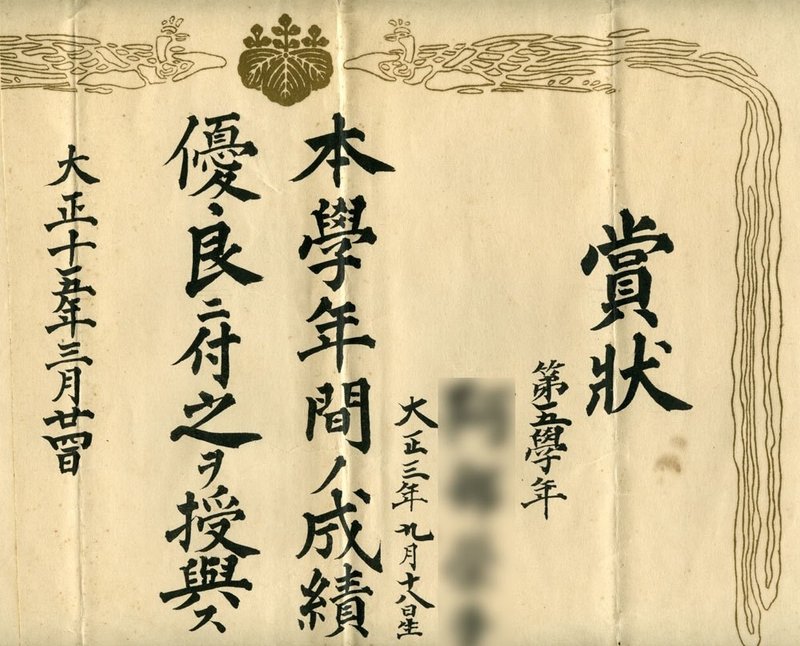 賞狀
第五學年
大正三年九月十八日生
本學年間ノ成績
優良ニ付之ヲ授與ス
大正十五年三月廿四日